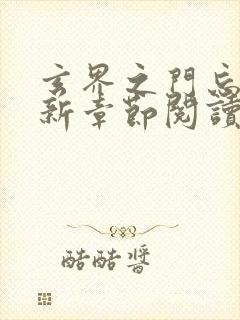 玄界之門忘
新章節閱讀
酷酷醬